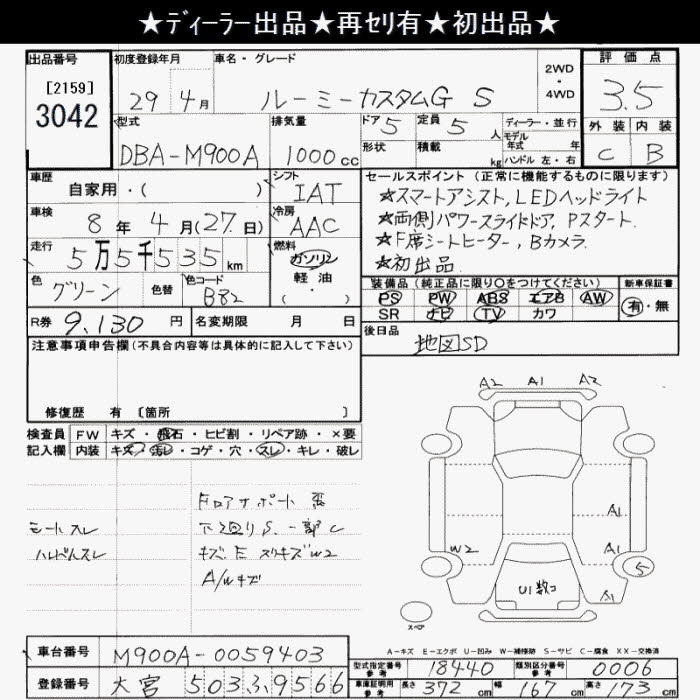 ★ディーラー出品★再セリ有★初出品★
出品番号 初度登録年月 車名・グレード 2WD・4WD 評価点
[2159]
3042 29 4月 ルーミーカスタムG S 3.5
型式 排気量 ドア 5 定員 5人 ディーラー・並行 外装 内装
DBA-M900A 1000cc 形状 積載 kg モデル年式 年 ハンドル 左・右 C B
車歴 自家用・( ) シフト IAT セールスポイント (正常に機能するものに限ります)
★スマートアシスト, LEDヘッドライト
車検 8年 4月(27日) 冷房 AAC ★両側パワースライドドア, Pスタート
走行 5万5千535km 燃料 ガソリン 軽油 ( ・ ) ★F席シートヒーター, Bカメラ
★初出品
色 グリーン 色替 色コード B82 装備品 (純正品に限り○をつけてください) 新車保証書
PS PW ABS エアB AW 有・無
SR ナビ TV カワ
R券 9,130円 名変期限 月 日 後日品
地図SD
注意事項申告欄 (不具合内容等は具体的に記入して下さい)
修復歴 有 [箇所 ]
検査員 FW キズ・飛石・ヒビ割・リペア跡・×要
記入欄 内装 キズ・汚レ・コゲ・穴・スレ・キレ・破レ
下廻りS.一部C
A/Wキズ
A2 A1 A2
A1
W2 A1
5
U1数コ A1
スペア
A-キズ E-エクボ U-凹み W-補修跡 S-サビ C-腐食 XX-交換済
車台番号 M900A-0059403 型式指定番号 参考 18440 類別区分番号 参考 0006
登録番号 大宮 503 ふ 9566 車庫証明用 参考 長さ 372cm 幅 167cm 高さ 173cm